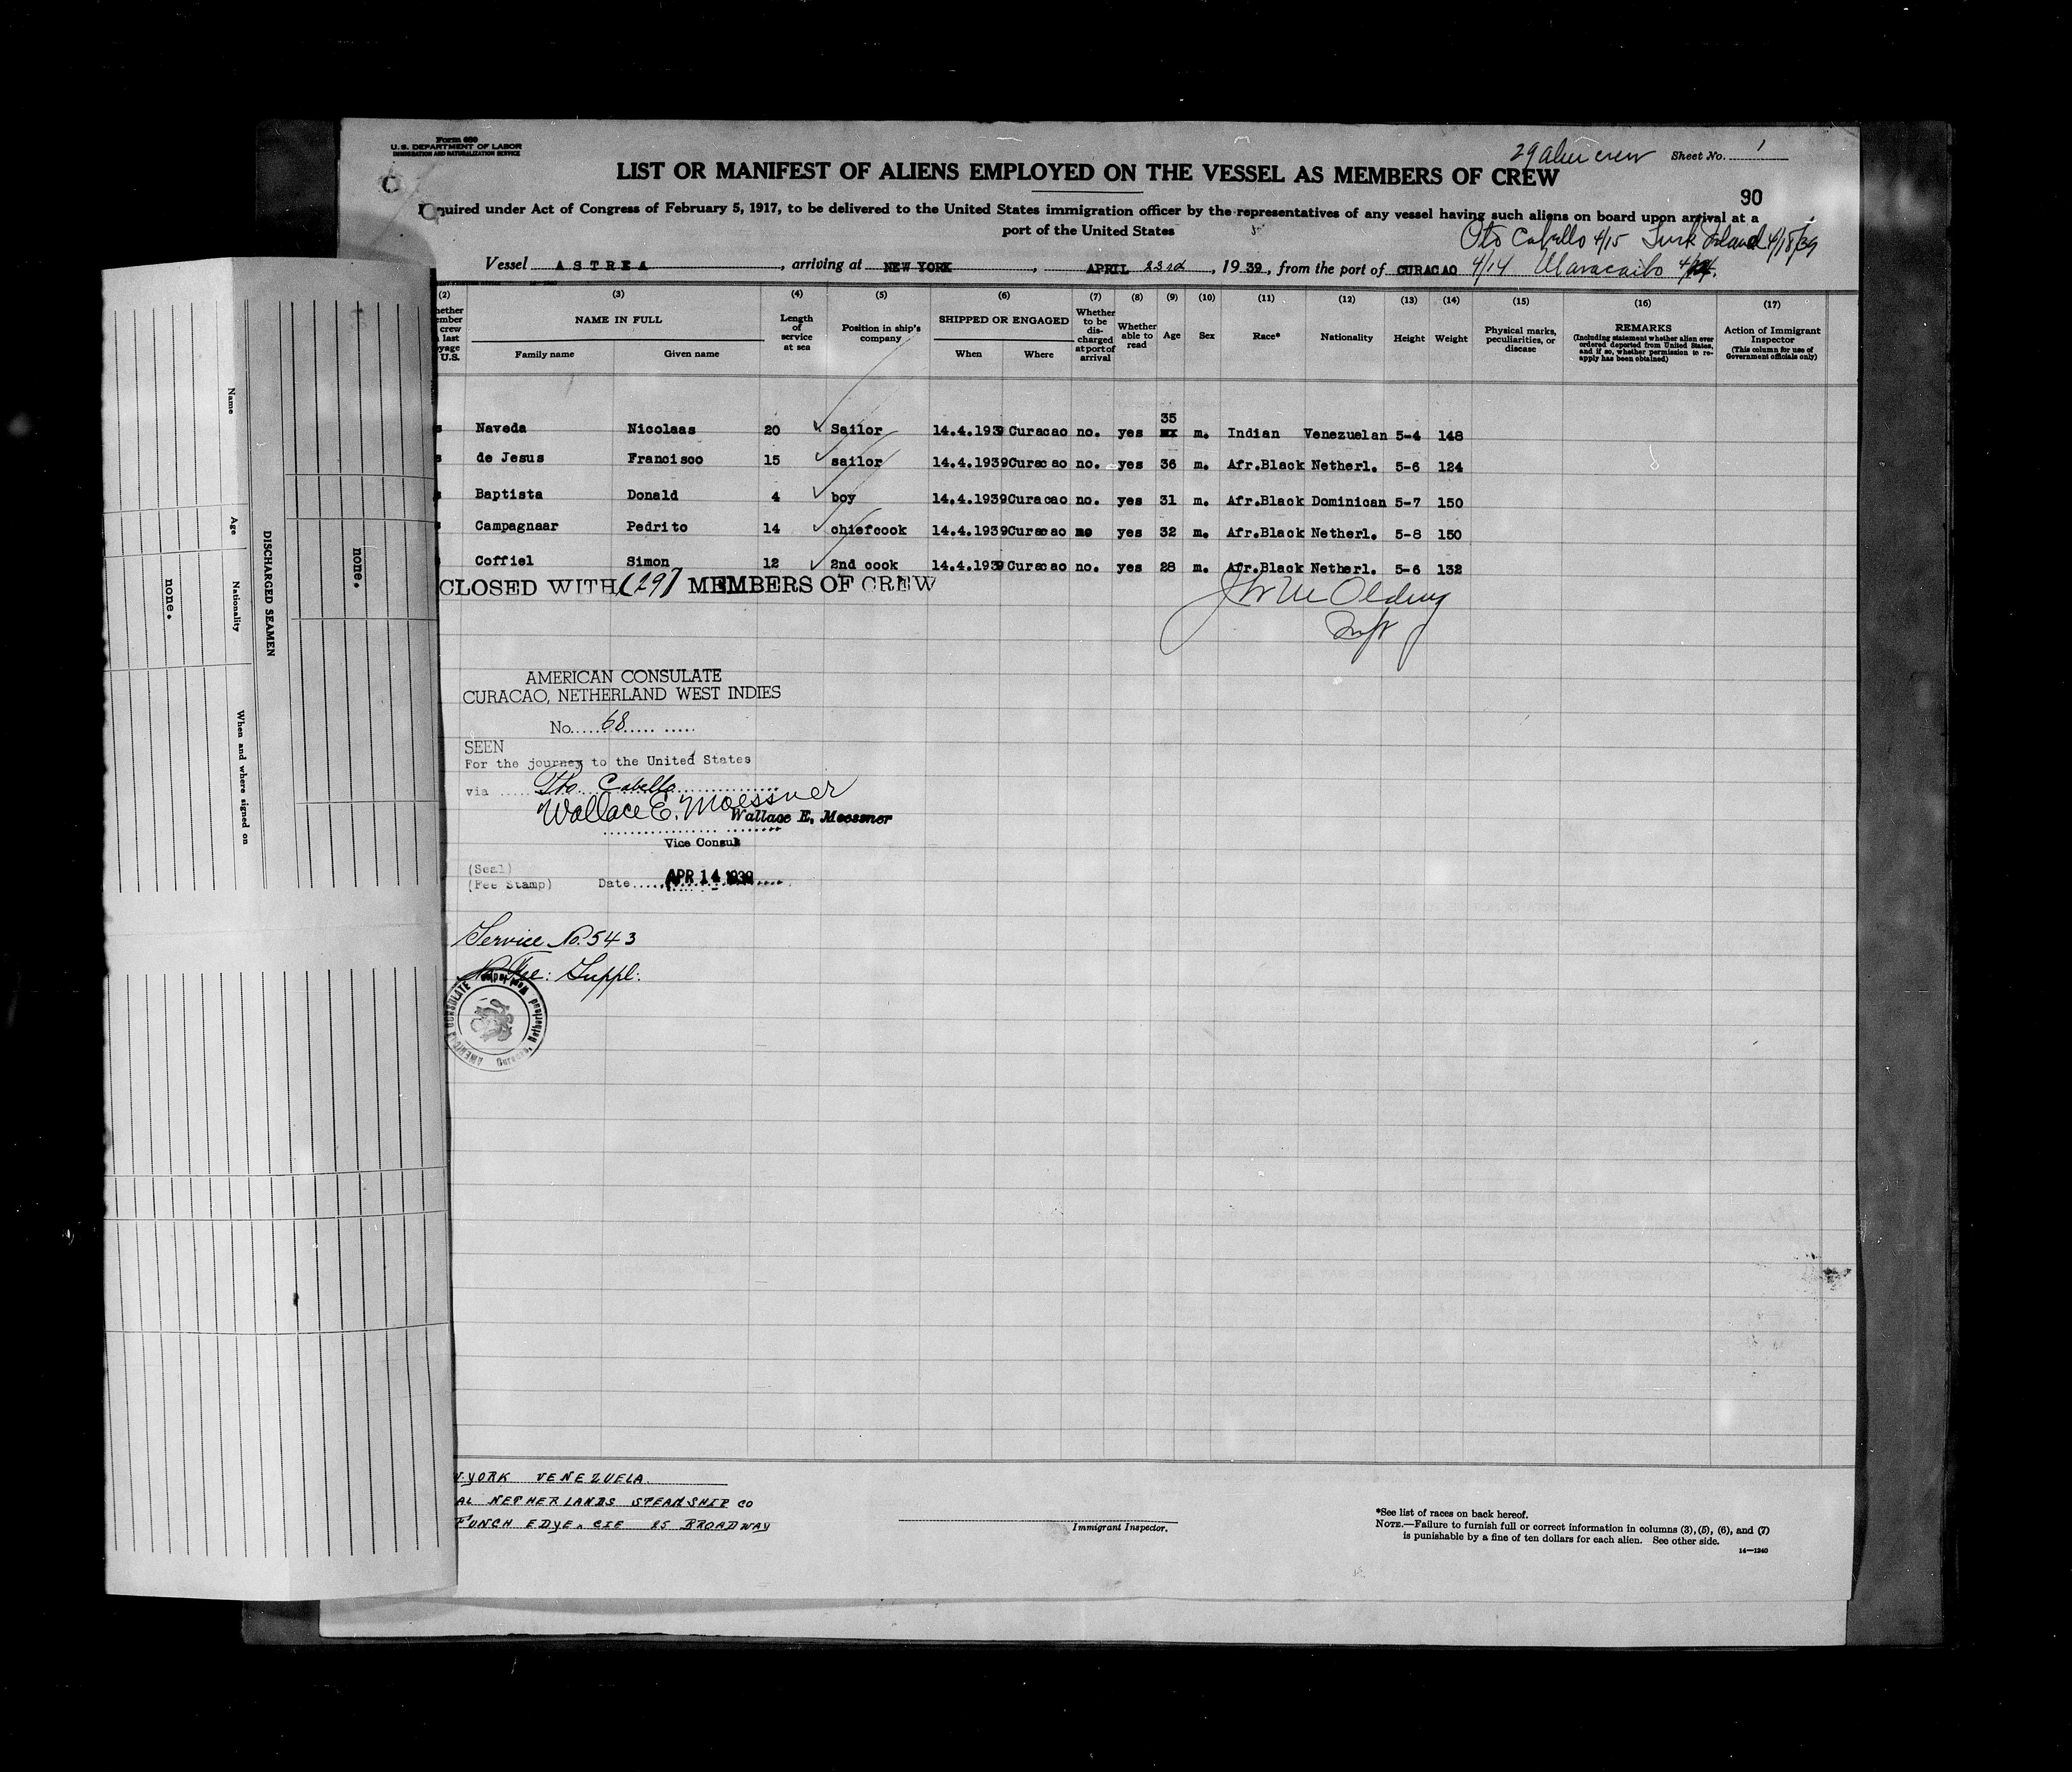 Form 680
U.S. DEPARTMENT OF LABOR
IMMIGRATION AND NATURALIZATION SERVICE
29 alien crew Sheet No. 1
LIST OR MANIFEST OF ALIENS EMPLOYED ON THE VESSEL AS MEMBERS OF CREW
90
quired under Act of Congress of February 5, 1917, to be delivered to the United States immigration officer by the representatives of any vessel having such aliens on board upon arrival at a
port of the United States
Pto Cabello 4/15 Turk Island 4/18/39
Vessel ASTREA, arriving at NEW YORK, APRIL 23rd, 1939, from the port of CURACAO 4/14 Maracaibo
(2) (3) (4) (5) (6) (7) (8) (9) (10) (11) (12) (13) (14) (15) (16) (17)
hether ember crew last yage U.S.
NAME IN FULL
Family name Given name
Length of service at sea
Position in ship's company
SHIPPED OR ENGAGED
When Where
Whether to be discharged at port of arrival
Whether able to read
Age Sex Race* Nationality Height Weight
Physical marks, peculiarities, or disease
REMARKS
(Including statement whether alien ever ordered deported from United States, and if so, whether permission to reapply has been obtained)
Action of Immigrant Inspector
(This column for use of Government officials only)
35
s Naveda Nicolaas 20 Sailor 14.4.1939 Curacao no. yes xx m. Indian Venezuelan 5-4 148
s de Jesus Francisco 15 sailor 14.4.1939 Curacao no. yes 36 m. Afr.Black Netherl. 5-6 124
s Baptista Donald 4 boy 14.4.1939 Curacao no. yes 31 m. Afr.Black Dominican 5-7 150
s Campagnaar Pedrito 14 chiefcook 14.4.1939 Curacao no yes 32 m. Afr.Black Netherl. 5-8 150
Coffiel Simon 12 2nd cook 14.4.1939 Curacao no. yes 28 m. Afr.Black Netherl. 5-6 132
CLOSED WITH (29) MEMBERS OF CREW
AMERICAN CONSULATE
CURACAO, NETHERLAND WEST INDIES
No. 68
SEEN
For the journey to the United States
via Pto Cabello
Wallace E. Moessner
Wallace E. Moessner
Vice Consul
(Seal)
(Fee Stamp) Date APR 14 1939
Service No. 543
No Fee: Suppl:
AMERICAN CONSULATE
Curacao, Netherland West Indies
W.YORK VENEZUELA
AL NETHERLANDS STEAMSHIP CO
FUNCH EDYE & CIE 25 BROADWAY
Immigrant Inspector.
*See list of races on back hereof.
NOTE.—Failure to furnish full or correct information in columns (3), (5), (6), and (7)
is punishable by a fine of ten dollars for each alien. See other side.
14—1240
DISCHARGED SEAMEN
Name Age Nationality When and where signed on
none.
none.